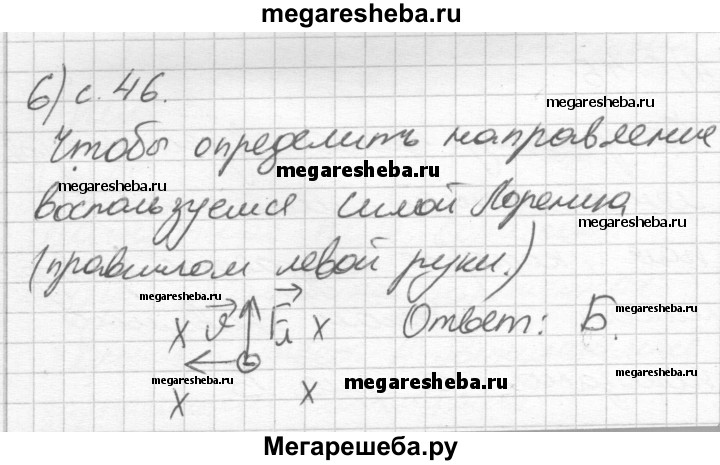 megaresheba.ru
6) с. 46.
megaresheba.ru
Чтобы определить направление
megaresheba.ru
megaresheba.ru
воспользуемся силой Лоренца
megaresheba.ru
(правилом левой руки.)
megaresheba.ru megaresheba.ru
х v Fл х Ответ: Б.
megaresheba.ru
megaresheba.ru megaresheba.ru
х х
Мегарешеба.ру